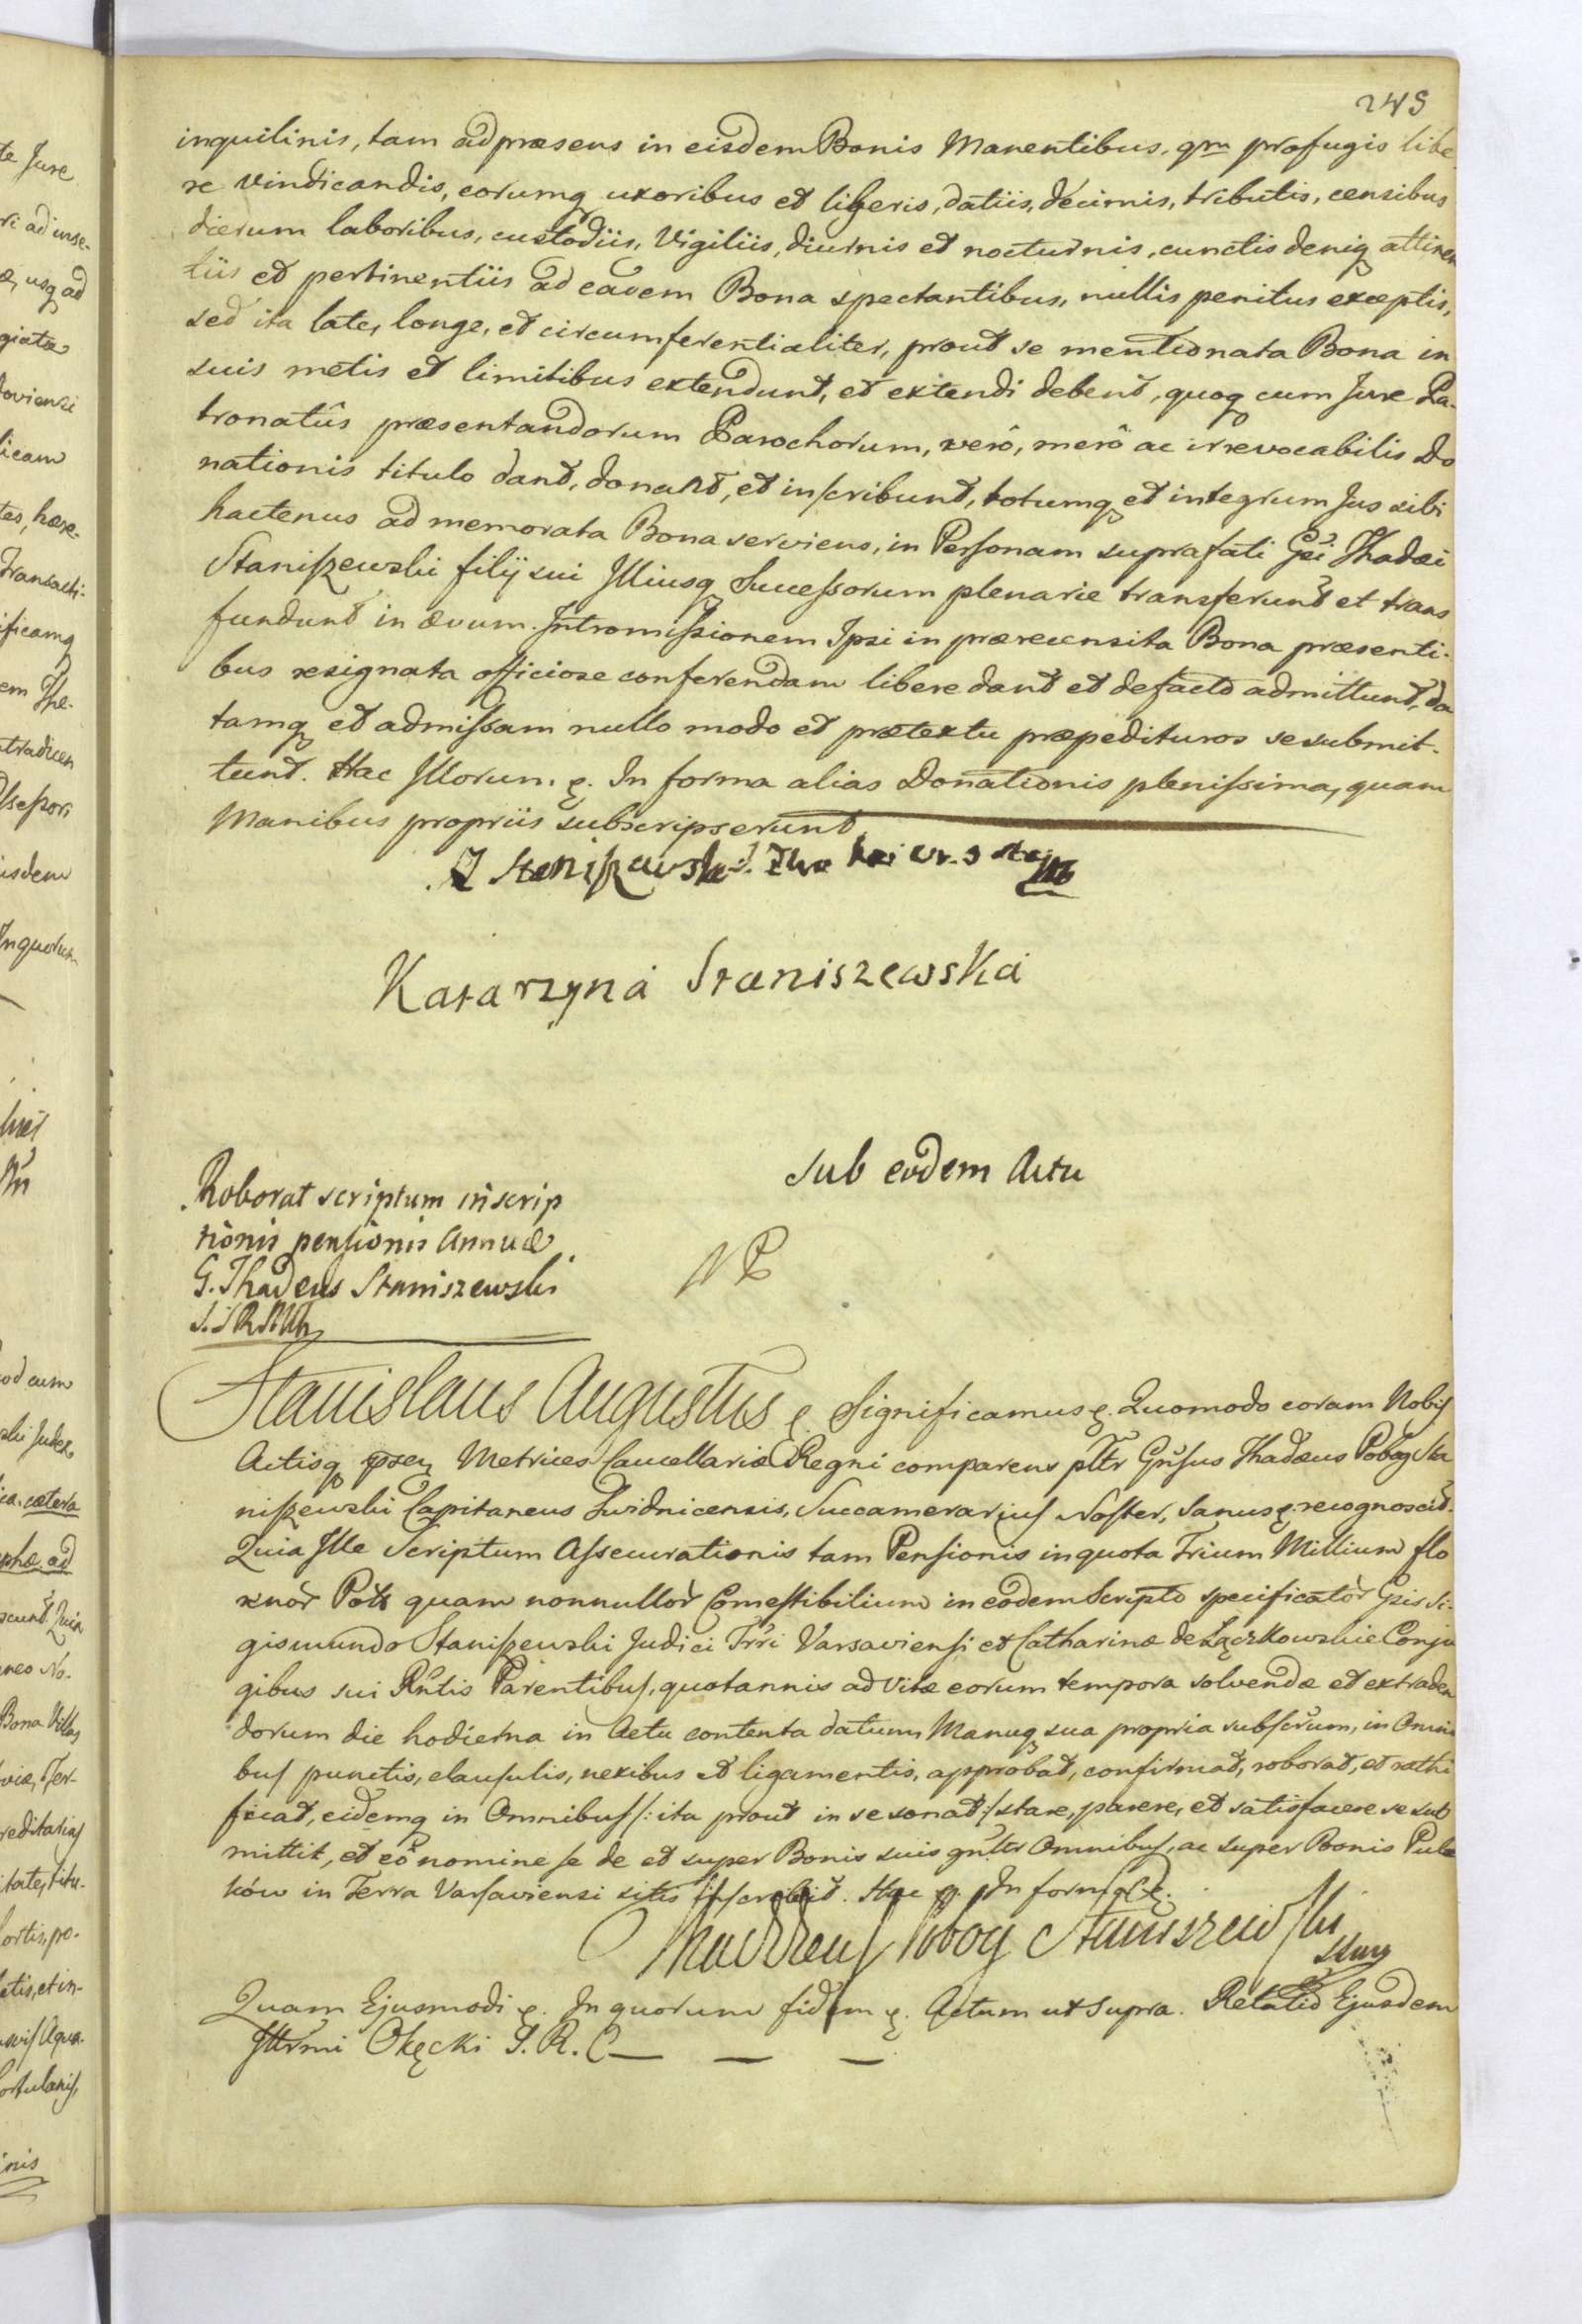 245
inquilinis, tam ad præsens in eisdem Bonis Manentibus, qm profugis libe
re vindicandis, eorumq uxoribus et liberis, datiis, decimis, tributis, censibus
dierum laboribus, custodiis, Vigiliis, diurnis et nocturnis, cunctis deniq attinen
tiis et pertinentiis ad eadem Bona spectantibus, nullis penitus exceptis,
sed ita late, longe, et circumferentialiter, prout se mentionata Bona in
suis metis et limitibus extendunt, et extendi debent, quoq cum Jure Pa-
tronatûs præsentandorum Parochorum, verô, merô ac irrevocabilis Do
nationis titulo dant, donant, et inscribunt, totumq et integrum Jus sibi
hactenus ad memorata Bona serviens, in Personam suprafati Gsi Thadæi
Staniszewski filij sui Illiusq Successorum plenarie transferunt et trans
fundunt in ævum. Intromissionem Ipsi in prærecensita Bona præsenti-
bus resignata officiose conferendam libere dant et defacto admittunt, da
tamq et admissam nullo modo et prætextu præpedituros se submit-
tunt. Hac Illorum. In forma alias Donationis plenissima, quam
Manibus propriis subscripserunt
Staniszewski
Katarzyna Staniszewska
Sub eodem Actu
Roborat scriptum inscrip
tionis pensionis Annuæ
G. Thadeus Staniszewski
NP
Stanislaus Augustus Significamus. Quomodo coram Nobis
Actisq Metrices Cancellariæ Regni comparens pltr Gnsus Thadæus Pobog Sta
niszewski Capitaneus Zwidnicensis, Succamerarius Noster, Sanus recognoscit.
Quia Ille Scriptum Assecurationis tam Pensionis in quota Trium Millium flo
renor Pol quam nonnullor Comestibilium in eodem Scripto specificator Gsis Si-
gismundo Staniszewski Judici Trri Varsaviensi et Catharinæ de Łączkowskie Conju
gibus sui Rntis Parentibus, quotannis ad vitæ eorum tempora solvendæ et extraden
dorum die hodierna in Actu contenta datum Manuq sua propria subscrum, in Omni
bus punctis, clausulis, nexibus et ligamentis, approbat, confirmat, roborat, et rathi
ficat, eidemq in Omnibus /: ita prout in se sonat :/ stare, parere, et satisfacere se sub
mittit, et eô nomine se de et super Bonis suis gnltr Omnibus, ac super Bonis Pula
ków in Terra Varsaviensi sitis inscribit. Hac In forma
Thaddeus Pobog Staniszewski
Quam Ejusmodi. In quorum fidem. Actum ut supra. Relatio Ejusdem
Illrmi Okęcki S. R. C — — —